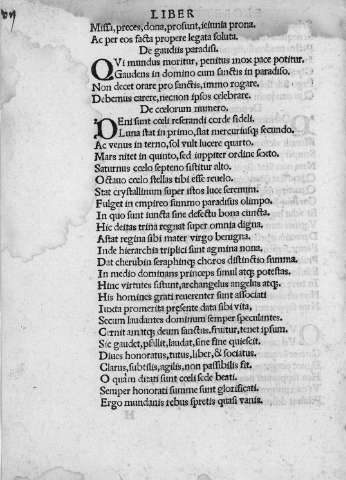 LIBER
Missa, preces, dona, prosunt, ieiunia prona.
Ac per eos facta propere legata soluta.
De gaudiis paradisi.
QVi mundus moritur, penitus mox pace potitur.
Gaudens in domino cum sanctis in paradiso.
Non decet orare pro sanctis, immo rogare.
Debemus carere, necnon ipsos celebrare.
De cœlorum numero.
DEni sunt cœli referandi corde fideli.
Luna stat in primo, stat mercuriusq; secundo.
Ac venus in terno, sol vult lucere quarto.
Mars nitet in quinto, sed iuppiter ordine sexto.
Saturnus cœlo septeno sistitur alto.
Octauo cœlo stellas tibi esse reuelo.
Stat crystallinum super istos luce serenum.
Fulget in empireo summo paradisus olimpo.
In quo sunt iuncta sine defectu bona cuncta.
Hic deitas trina regnat super omnia digna.
Astat regina sibi mater virgo benigna.
Inde hierarchia triplici sunt agmina nona.
Dat cherubin seraphinq; choros distinctio summa.
In medio dominans princeps simul atq; potestas.
Hinc virtutes sistunt, archangelus angelus atq;
His homines grati reuerenter sunt associati
Iuxta promerita presente data sibi vita,
Secum laudantes dominum semper speculantes.
Cernit amatq; deum sanctus, fruitur, tenet ipsum.
Sic gaudet, psallit, laudat, sine fine quiescit.
Diues honoratus, tutus, liber, & sociatus.
Clarus, subtilis, agilis, non passibilis fit.
O quàm ditati sunt cœli sede beati.
Semper honorati summe sunt glorificati.
Ergo mundanis rebus spretis quasi vanis.